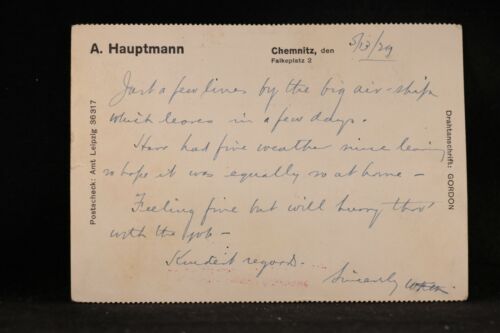 A. Hauptmann
Chemnitz, den 5/13/29
Falkeplatz 2
Postscheck: Amt Leipzig 36317
Drahtanschrift: GORDON
Just a few lines by the big air-ship
which leaves in a few days.
Have had fine weather since leaving
so hope it was equally so at home -
Feeling fine but will hurry thro'
with the job -
Kindest regards -
Sincerely